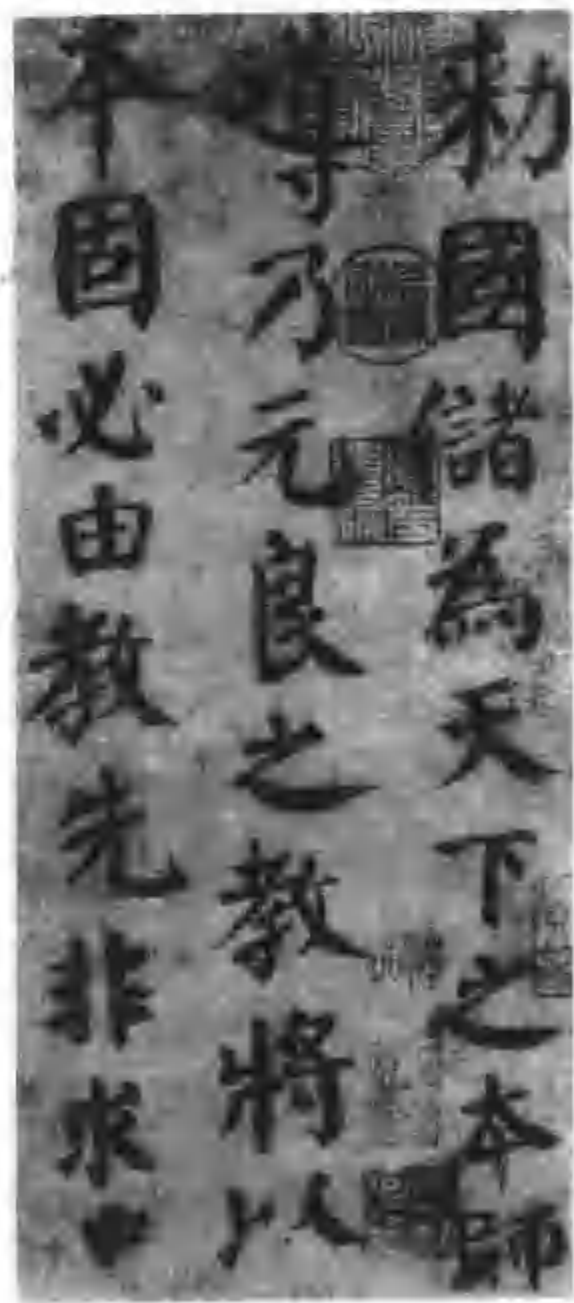 勑國儲為天下之本師
導乃元良之教將以
本固必由教先非求